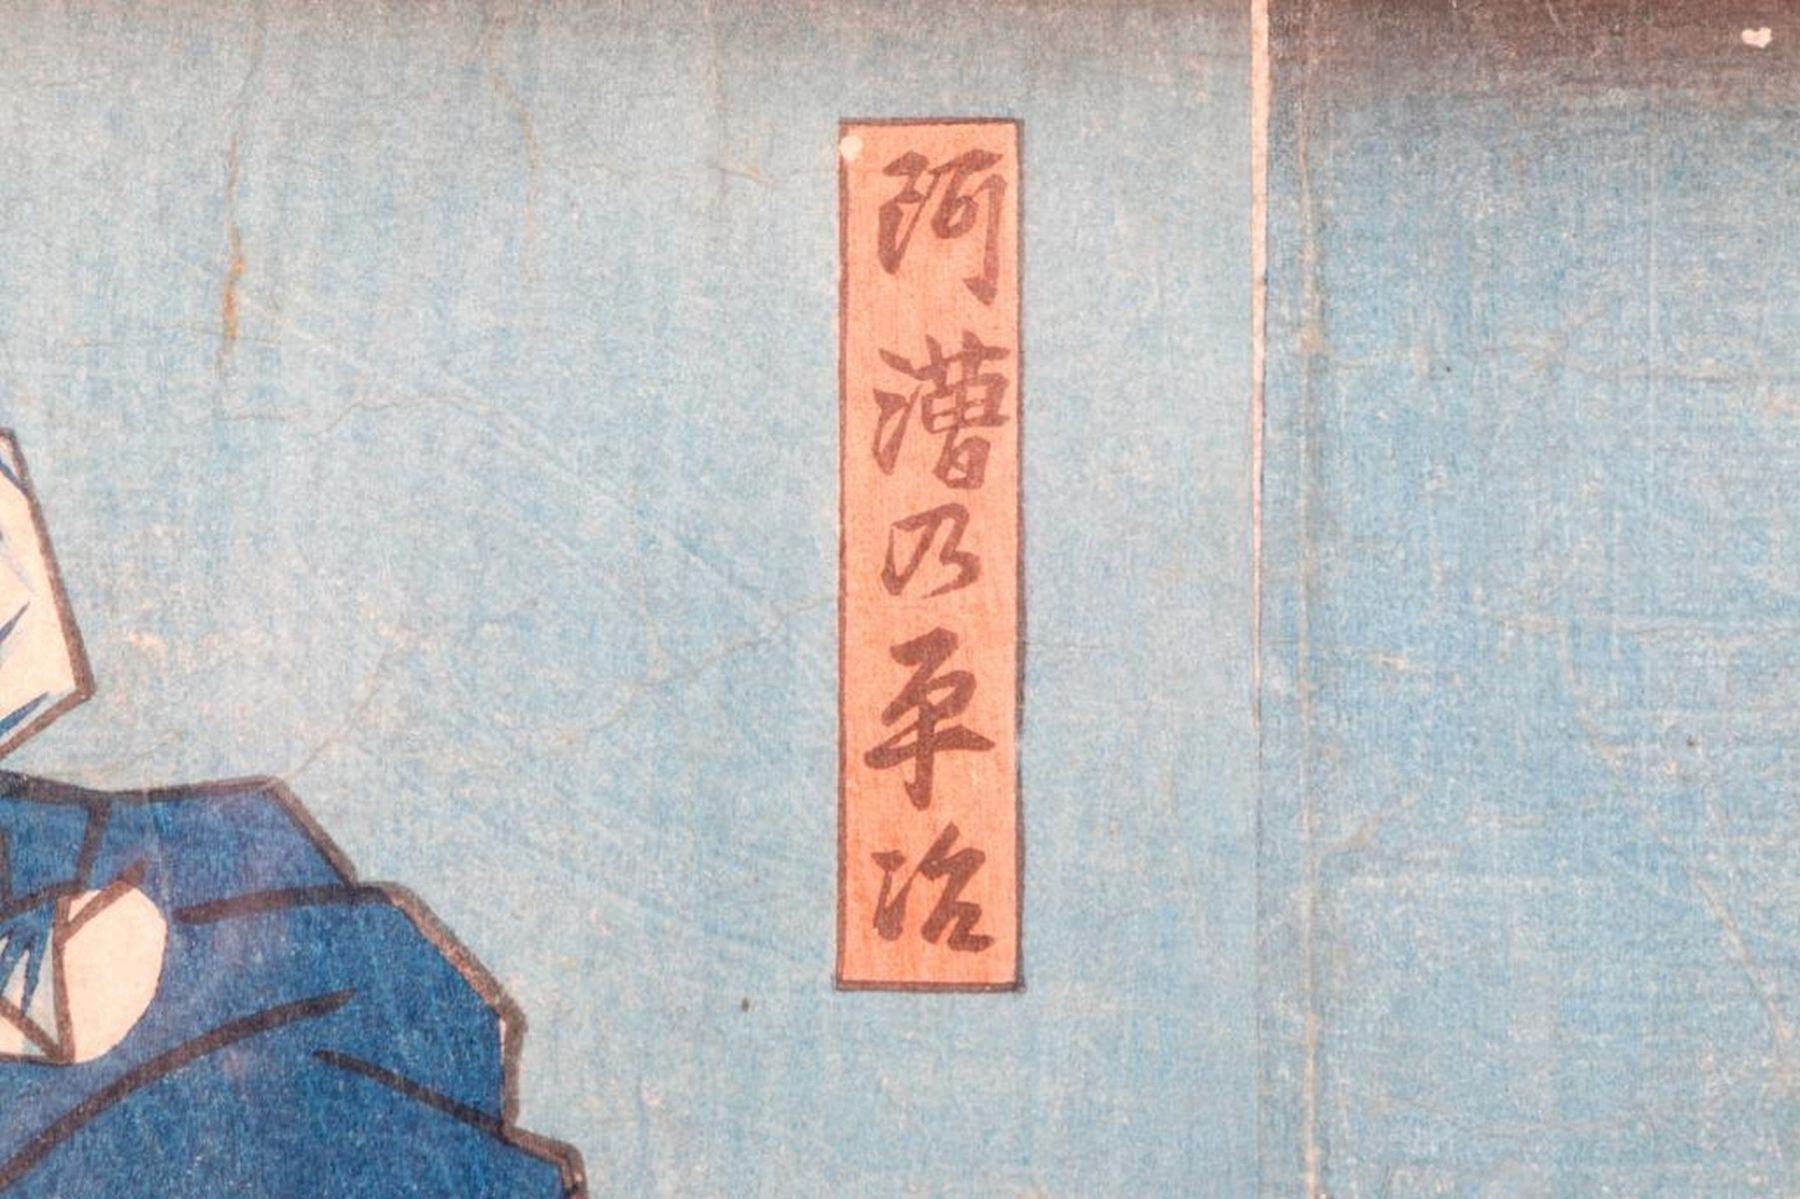 阿漕乃平治